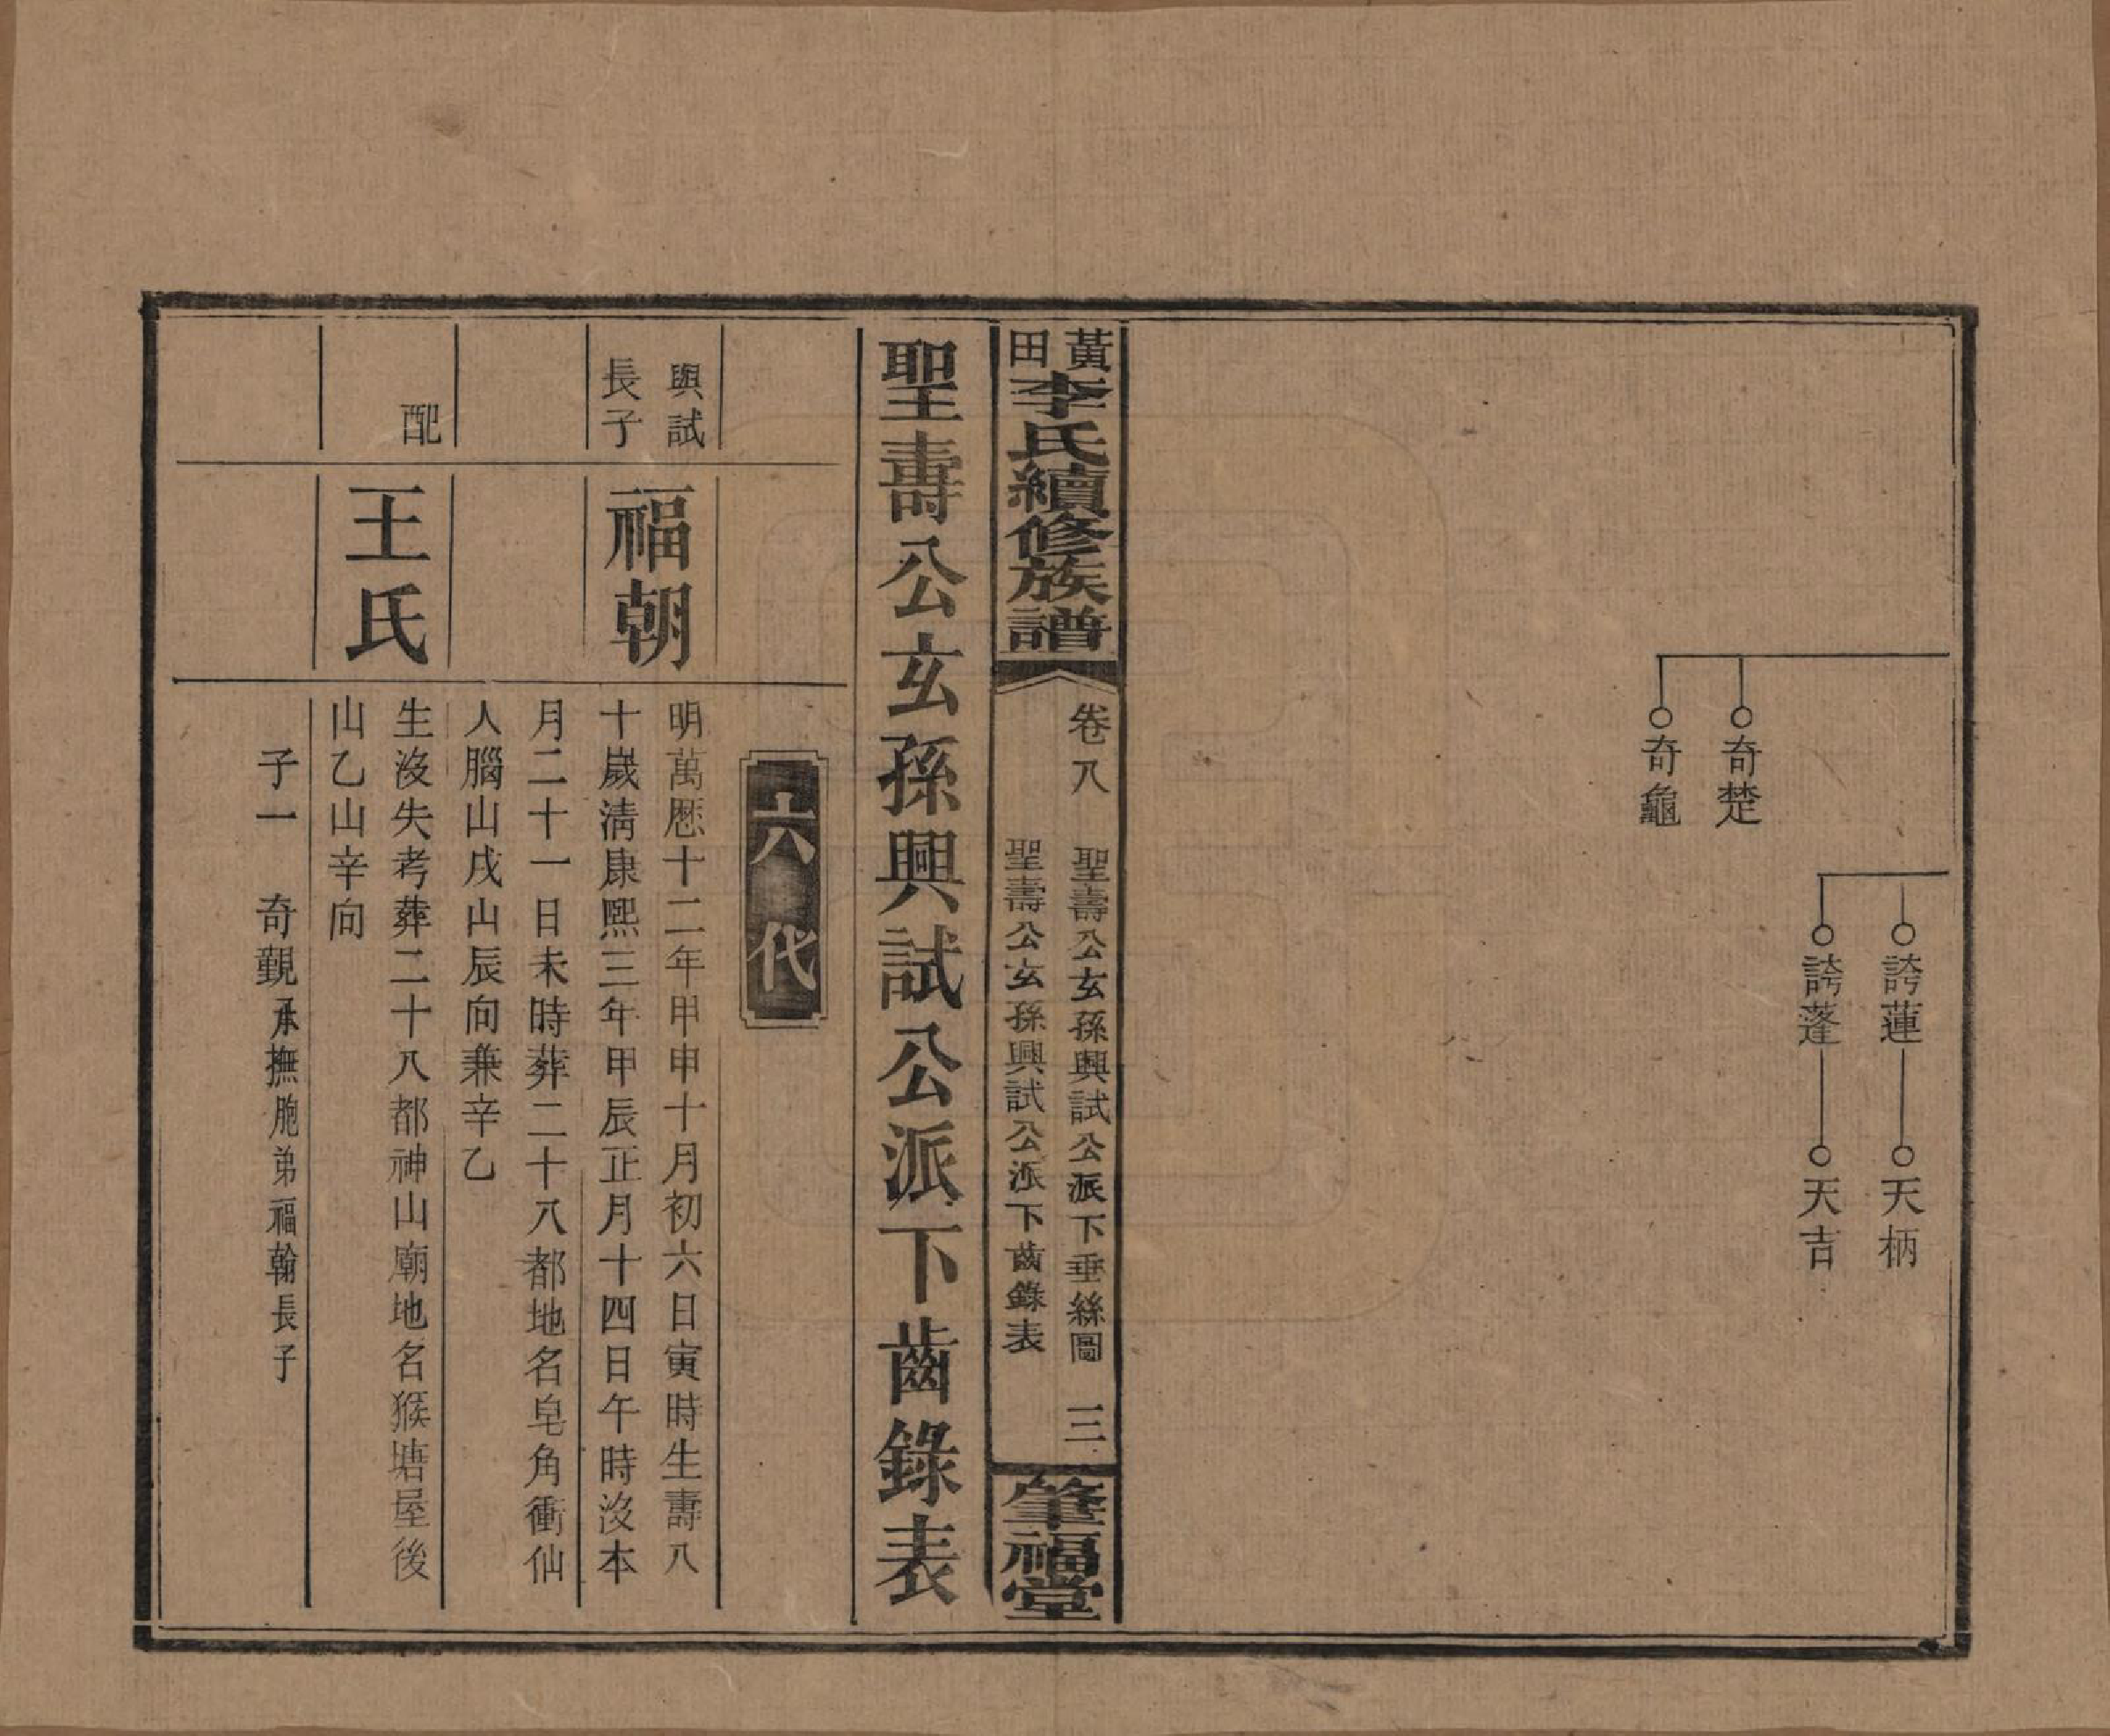 誇蓮 天柄
誇蓬 天吉
奇楚
奇龜
黃田李氏續修族譜
卷八 聖壽公玄孫興試公派下垂絲圖 三
聖壽公玄孫興試公派下齒錄表
筆福堂
聖壽公玄孫興試公派下齒錄表
六代
興試
長子
福朝
明萬厯十二年甲申十月初六日寅時生壽八
十歲清康熙三年甲辰正月十四日午時沒本
月二十一日未時葬二十八都地名皂角衝仙
人腦山戌山辰向兼辛乙
配
王氏
生沒失考葬二十八都神山廟地名猴塘屋後
山乙山辛向
子一 奇觀承撫胞弟福翰長子